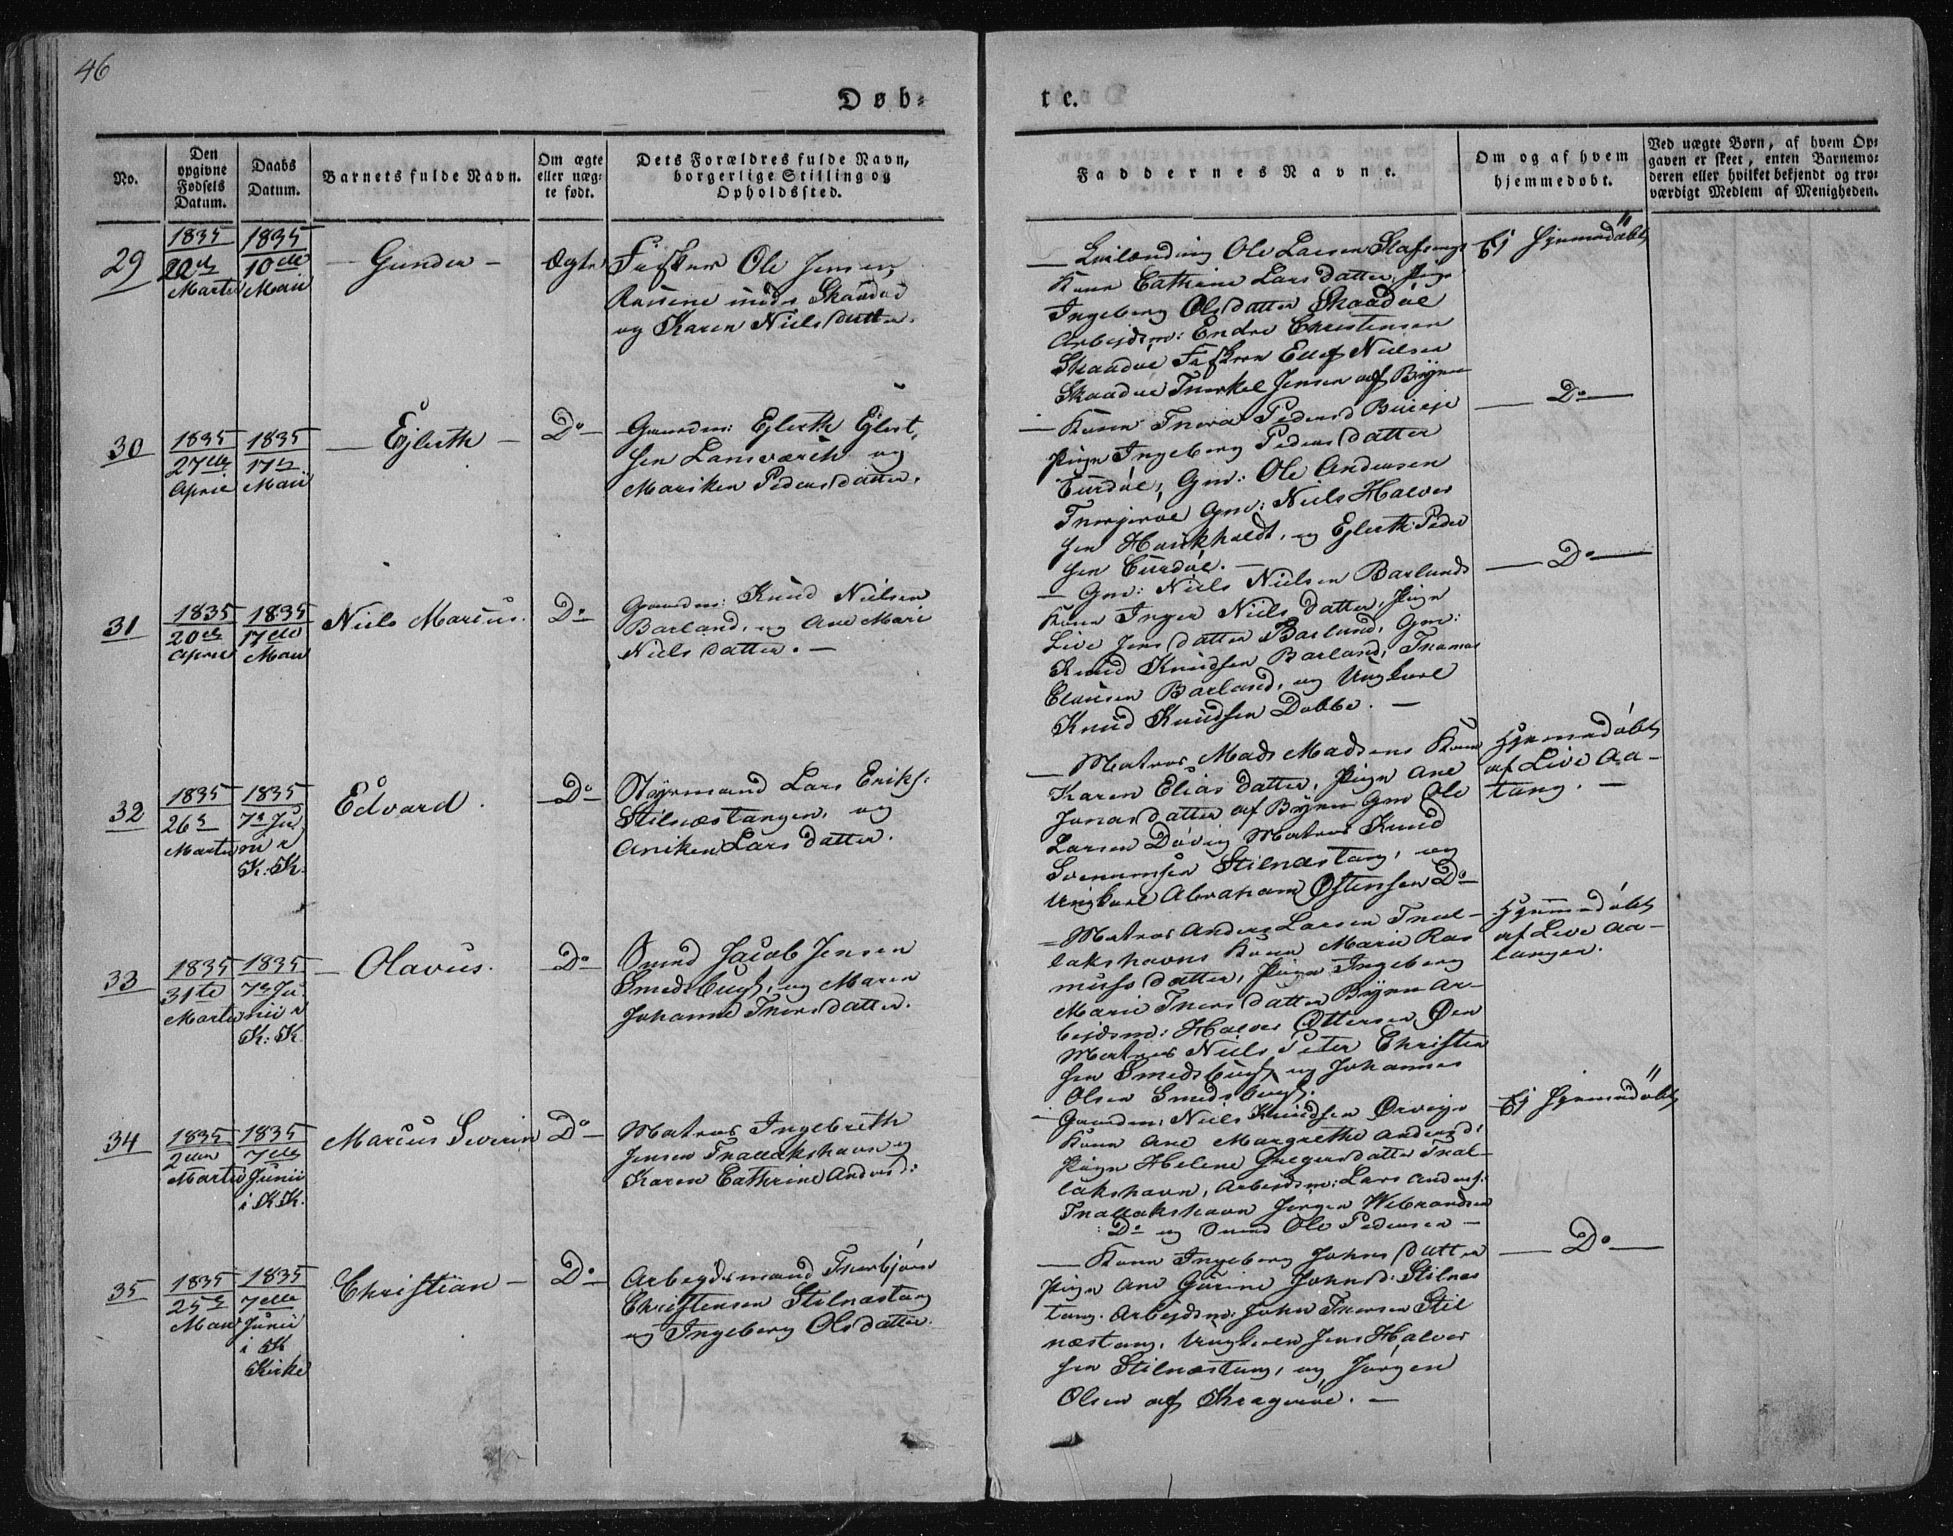 46
Døb-
te.
No.
Den opgivne Fødsels Datum.
Daabs Datum.
Barnets fulde Navn.
Om ægte eller uægte født.
Dets Forældres fulde Navn,
borgerlige Stilling og
Opholdssted.
Faddernes Navne.
Om og af hvem
hjemmedøbt.
Ved uægte Børn, af hvem Op-
gaven er skeet, enten Barnemo-
deren eller hvilket bekjendt og tro-
værdigt Medlem af Menigheden.
29
1835
Martii
1835
10de
Maii
Gunder
Ægte
Fisker Ole Jensen
Skaadøe
og Karen Nielsdatter.
Ole Larsen
Kone Cathrine Larsdatter, Pige
Ingeborg Olsdatter Skaadøe
Arbejdsm: Endre Christensen
Skaadøe Fisker Ellef Nielsen
Skaadøe Jensen af Byen
Ej Hjemmedøbt
30
1835
27de
April
1835
17de
Maii
Ejlerth
Do
Gaardm: Ejlerth Ejlert-
sen og
Mariken Pedersdatter.
Kone Thora Peders
Pige Ingeborg Pedersdatter
Gm: Ole Andersen
Gm: Niels Halvor
sen og Ejlerth Peder
sen
Do
31
1835
20de
April
1835
17de
Maii
Niels Marcus.
Do
Gaardm: Knud Nielsen
Barland, og Ane Mari
Nielsdatter.
Gm: Niels Nielsen Barlands
Kone Inger Nielsdatter, Pige
Live Jensdatter Barland, Gm:
Knud Knudsen Barland, Thomas
Clausen Barland, og Ungkarl
Knud Knudsen Dobbe.
Do
32
1835
26
Martii
1835
7de Ju
nii i
K: K.
Edvard.
Do
Styrmand Lars Eriks:
Stilnæstangen, og
Aniken Larsdatter.
Matros Mads Madsens Kone
Karen Eliasdatter, Pige Ane
Jonasdatter af Byen Gm Ole
Larsen Døvig Matros Knud
Stilnæstang, og
Ungkarl Abraham Østensen Do
Hjemmedøbt
af Live Aa-
tang.
33
1835
31te
Martii
1835
7de Ju
nii i
K: K.
Olavus.
Do
Jacob Jensen
Smedsbugt, og Maren
Johanne Thorsdatter.
Matros Anders Larsen Tral-
lakshavns Kone Marie Ras
musdatter, Pige Ingeborg
Marie Thorsdatter Byen Ar-
bejdsm: Halvor Ottersen Øen
Matros Niels Peter Christen
sen Smedsbugt og Johannes
Olsen Smedsbugt.
Hjemmedøbt
af Live Aa-
tangen.
34
1835
2den
Martii
1835
7de
Junii
i K K.
Marcus Severin
Do
Matros Ingebreth
Jensen Trallakshavn og
Karen Cathrine Andersd:
Gaardm: Niels Knudsen
Kone Ane Margrethe Andersd,
Pige Helene Gregersdatter Tral-
lakshavn, Arbejdsm: Lars Anders:
Trallakshavn Jørgen Webrandsen
Do og Ole Pedersen
Ej Hjemmedøbt
35
1835
25
Maii
1835
7de
Junii
i K
Kirke
Christian
Do
Arbejdsmand Thorbjørn
Christensen Stilnæstang
og Ingeborg Olsdatter.
Kone Ingeborg Johnsdatter
Pige Ane Gurine Johnsd: Stilnæs
tang. Arbejdsm: John Thorsen Stil
næstang, Ungkarl Jens Halvor
sen Stilnæstang, og Jørgen
Olsen af Kragerøe.
Do